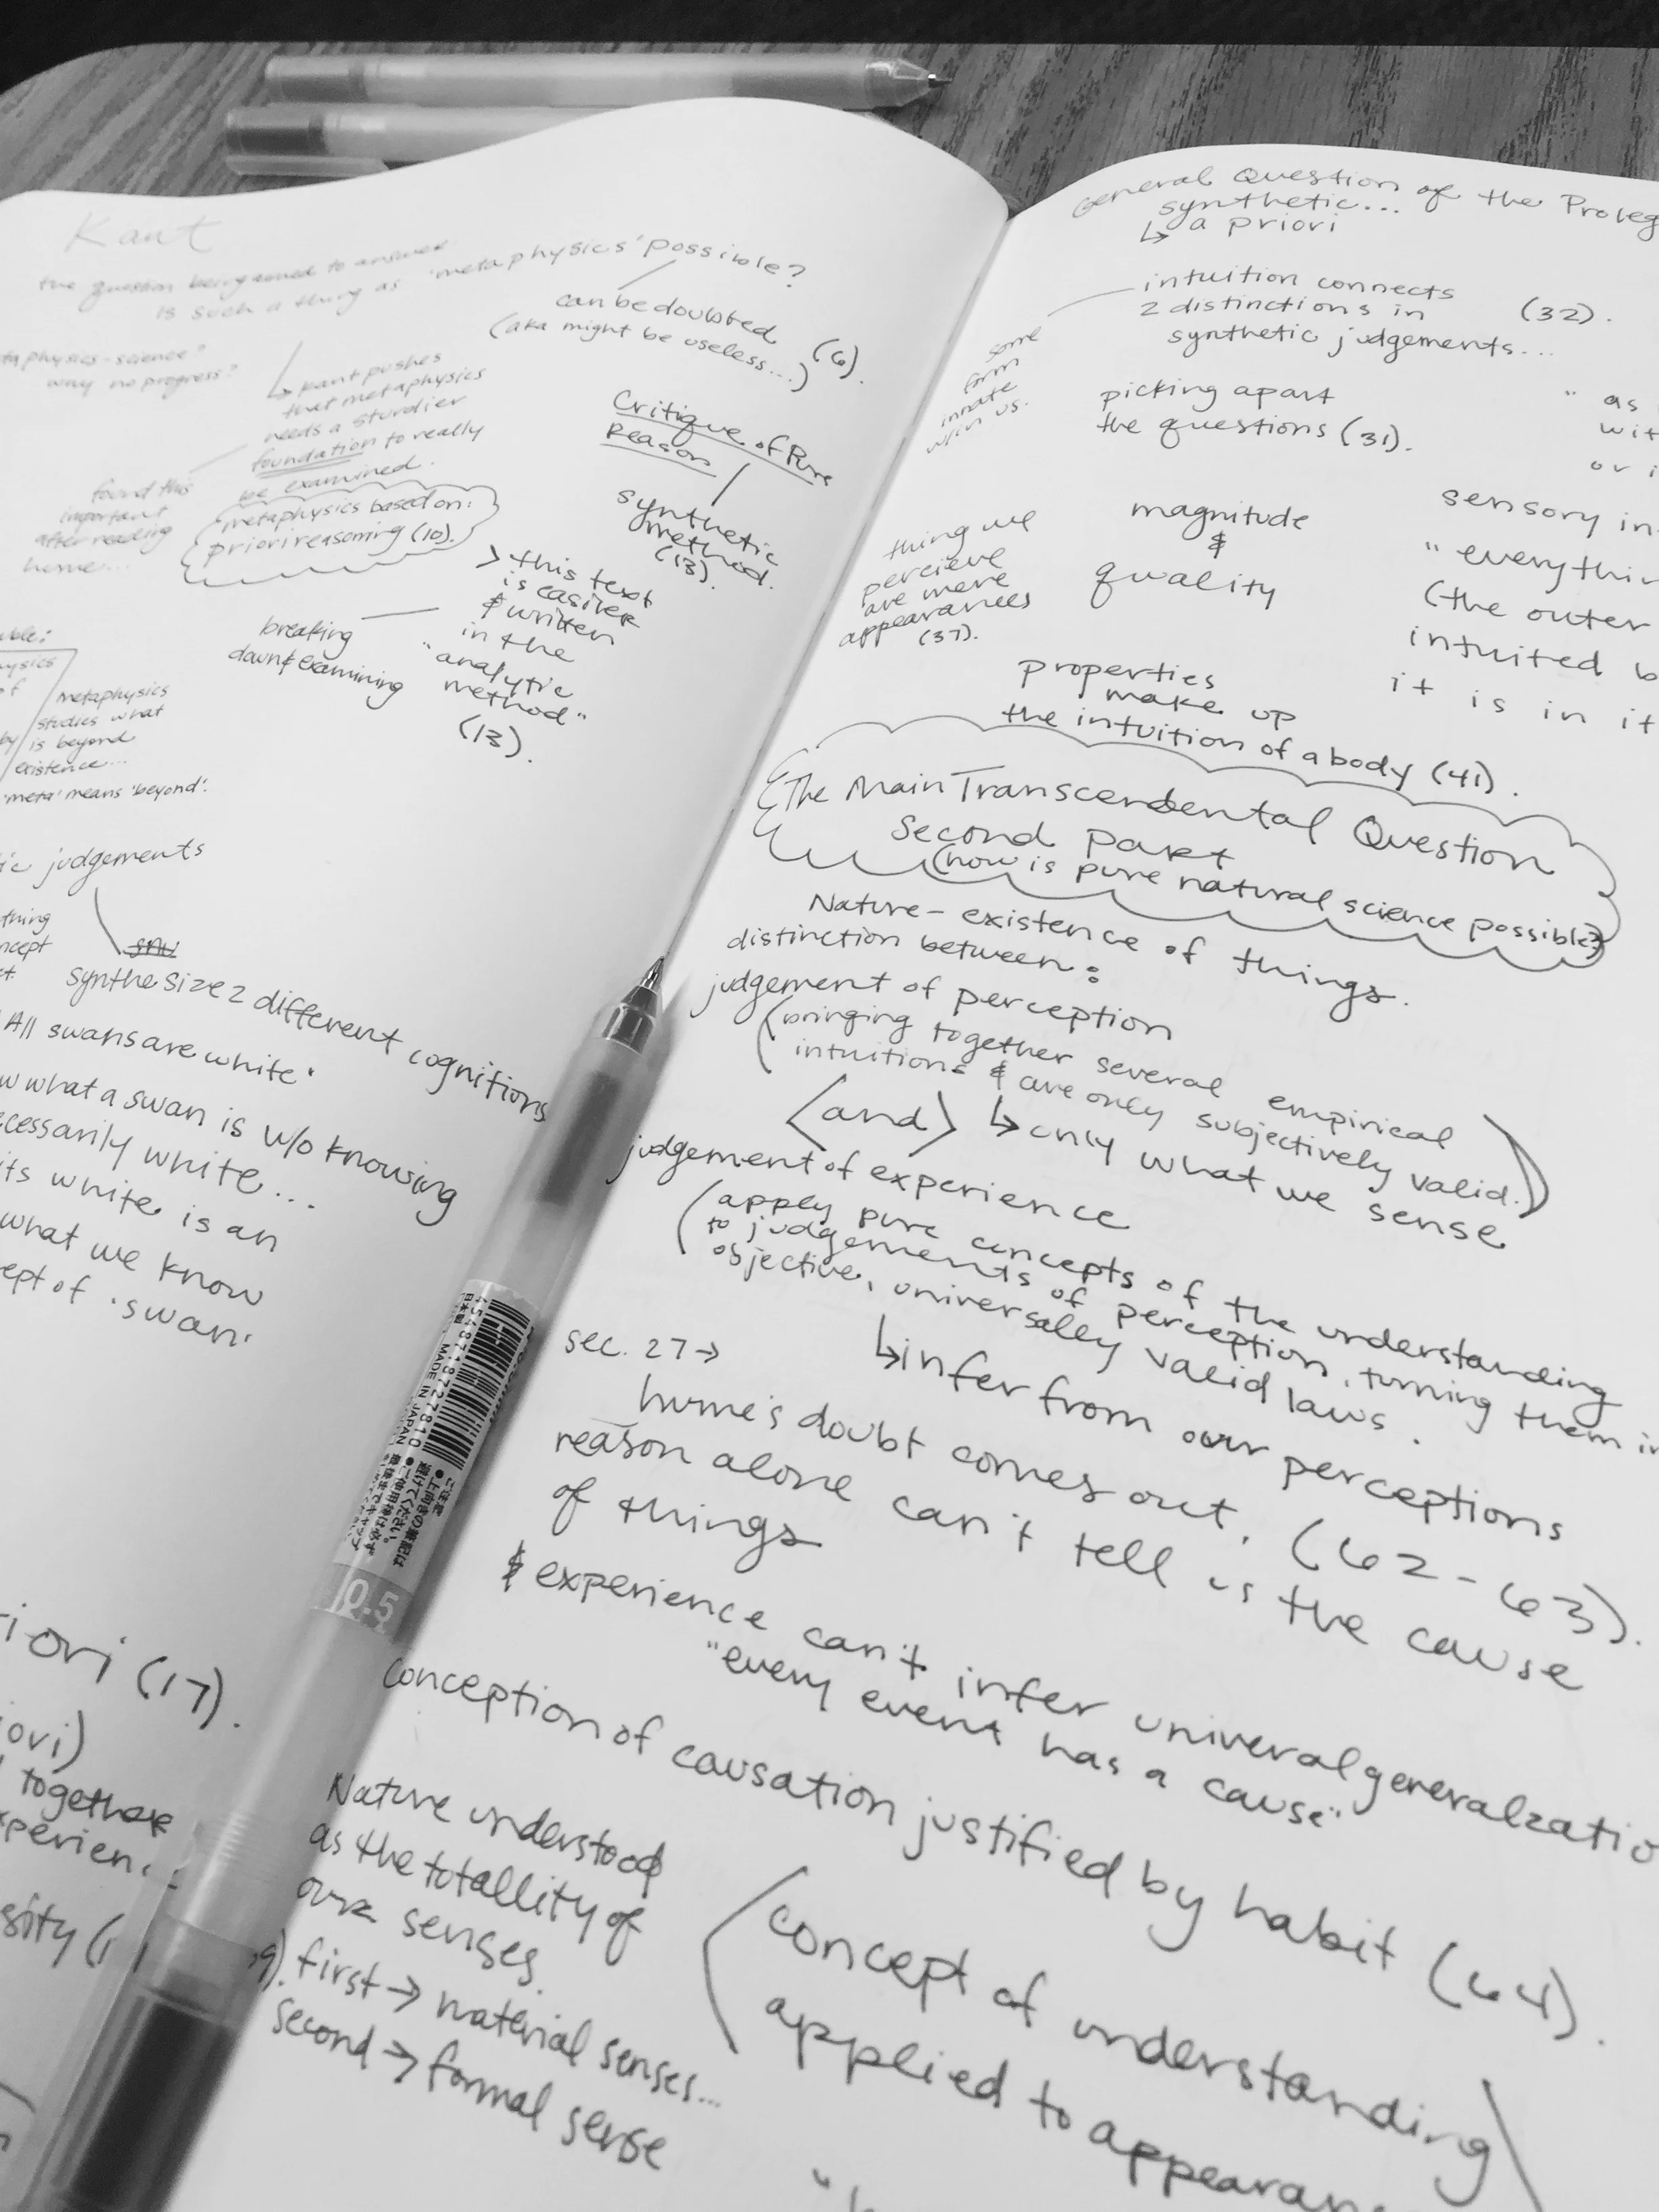 Kant
the question being aimed to answer
is such a thing as 'metaphysics' possible?
can be doubted
(aka might be useless...) (6).
metaphysics-science?
why no progress?
↳ kant pushes
that metaphysics
needs a sturdier
foundation to really
be examined.
found this
important
after reading
hume...
metaphysics based on:
priori reasoning (10).
Critique of Pure
Reason
synthetic
method.
(13).
> this text
is easier
& written
in the
"analytic
method"
(13).
breaking
down & examining
metaphysics
studies what
is beyond
existence...
'meta' means 'beyond'.
judgements
thing
synthesize 2 different cognitions
All swans are white"
what a swan is w/o knowing
white...
its white is an
what we know
of 'swan'
(17).
together
General Question of the Proleg
synthetic...
↳ a priori
intuition connects
2 distinctions in (32).
synthetic judgements...
some
form
innate
w/in us.
picking apart
the questions (31).
" as
wit
or i
magnitude
&
quality
thing we
percieve
are mere
appearances
(37).
sensory in
"everythin
(the outer
intuited b
it is in it
properties
make up
the intuition of a body (41).
The Main Transcendental Question
Second Part
(how is pure natural science possible?)
Nature - existence of things.
distinction between:
judgement of perception
(bringing together several empirical
intuitions & are only subjectively valid.)
<and> ↳ only what we sense
judgement of experience
(apply pure concepts of the understanding
to judgements of perception, turning them in
objective, universally valid laws.
↳ infer from our perceptions
sec. 27 →
hume's doubt comes out. (62-63).
reason alone can't tell is the cause
of things
& experience can't infer univeral generalzatio
"every event has a cause"
Conception of causation justified by habit (64).
Nature understood
as the totallity of
our senses.
9). first → material senses...
second → formal sense
(concept of understanding
applied to appearan
4548718727810
MADE IN JAPAN
0.5